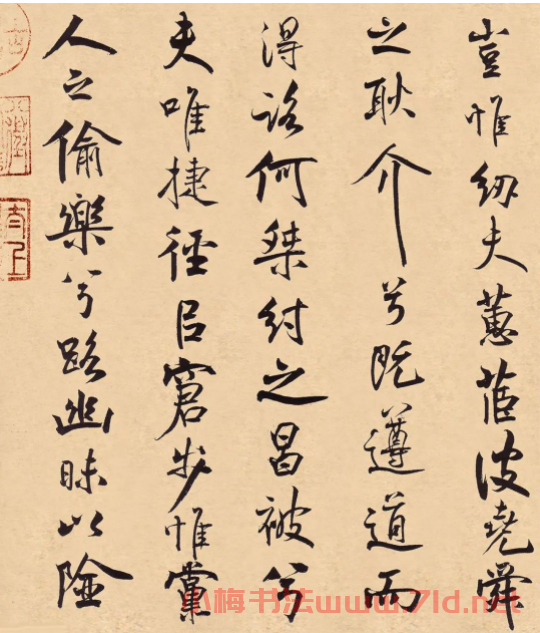 豈惟紉夫蕙茝彼堯舜
之耿介兮既遵道而
得路何桀紂之昌被兮
夫唯捷徑㠯窘步惟黨
人之偷樂兮路幽昧以險
小梅书法www.7ld.net